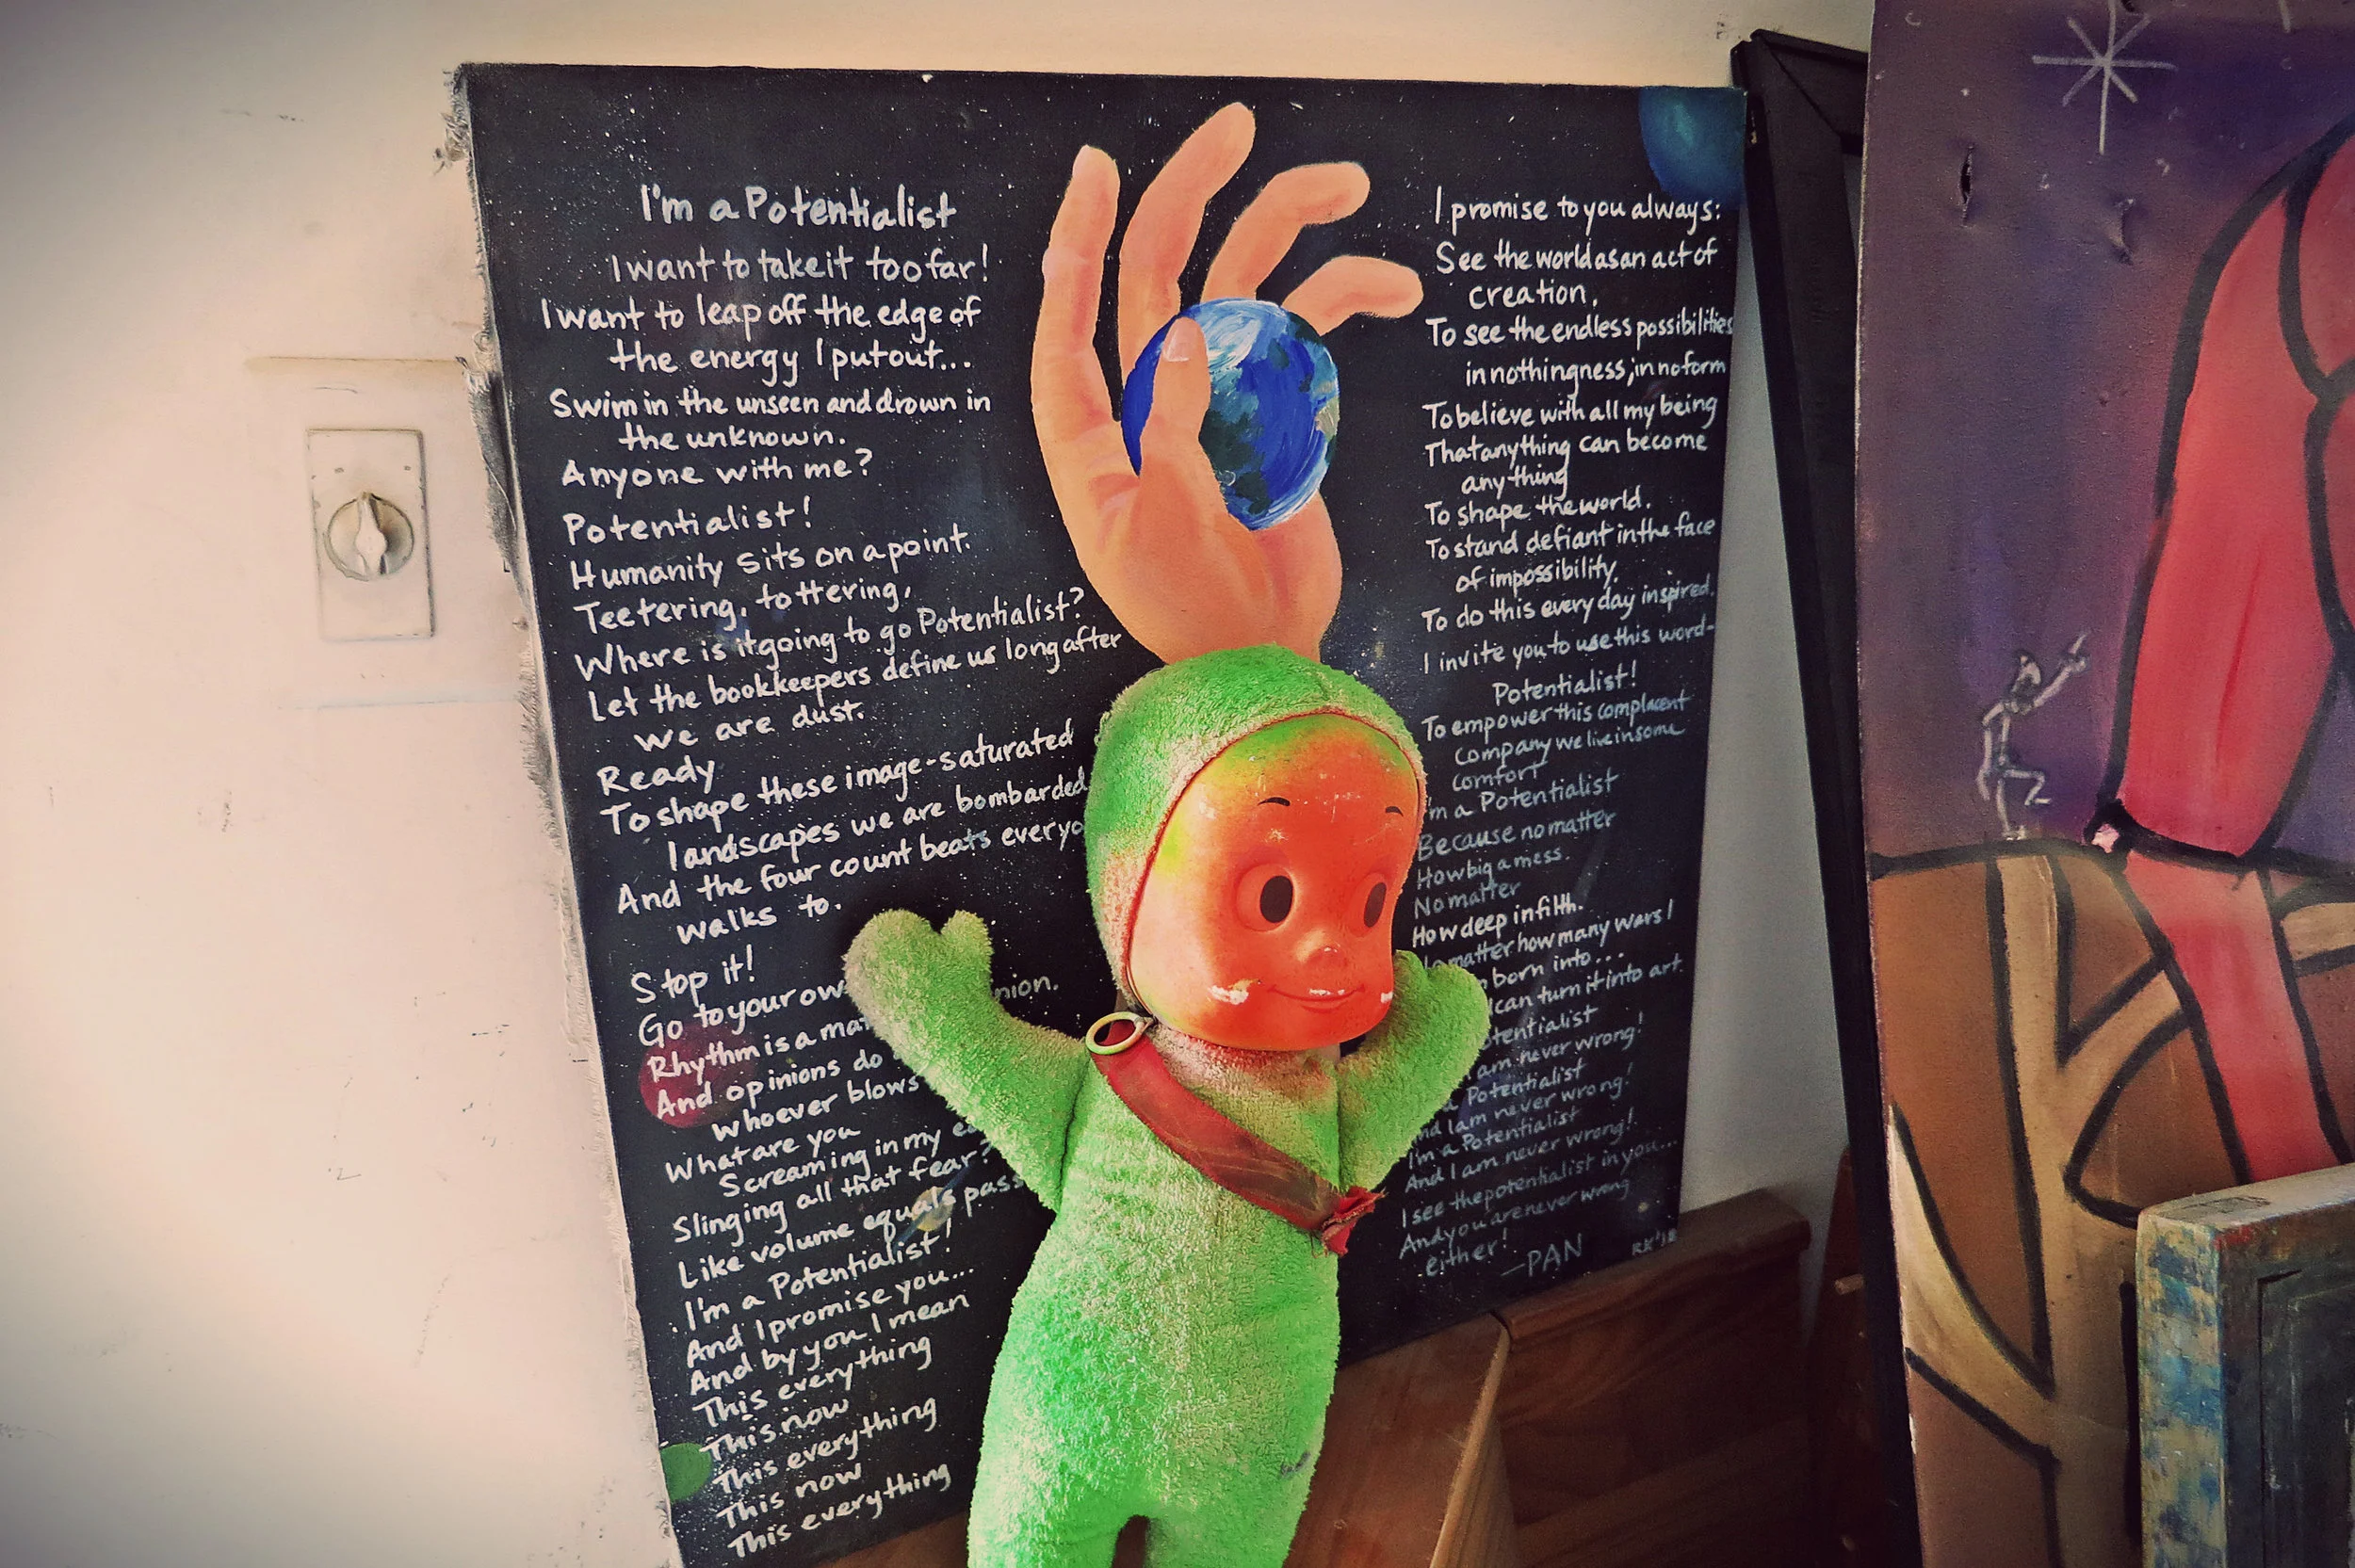 I'm a Potentialist
I want to take it too far!
I want to leap off the edge of
the energy I put out...
Swim in the unseen and drown in
the unknown.
Anyone with me?
Potentialist!
Humanity sits on a point.
Teetering, tottering,
Where is it going to go Potentialist?
Let the bookkeepers define us long after
we are dust.
Ready
To shape these image-saturated
landscapes we are bombarded
And the four count beats everyo
walks to.
Stop it!
Go to your ow nion.
Rhythm is a ma
And opinions do
whoever blows
What are you
Screaming in my e
Slinging all that fear?
Like volume equals pass
I'm a Potentialist!
And I promise you...
And by you I mean
This everything
This now
This everything
This now
This everything
I promise to you always:
See the world as an act of
creation.
To see the endless possibilities
in nothingness; in no form
To believe with all my being
That anything can become
anything
To shape the world.
To stand defiant in the face
of impossibility.
To do this every day inspired.
I invite you to use this word-
Potentialist!
To empower this complacent
Company we live in some
comfort
'm a Potentialist
Because no matter
How big a mess.
No matter
How deep in filth.
matter how many wars I
born into...
can turn it into art.
tentialist
am never wrong!
Potentialist
nd I am never wrong!
I'm a Potentialist
And I am never wrong!
I see the potentialist in you...
And you are never wrong
either!
—PAN
RK'18